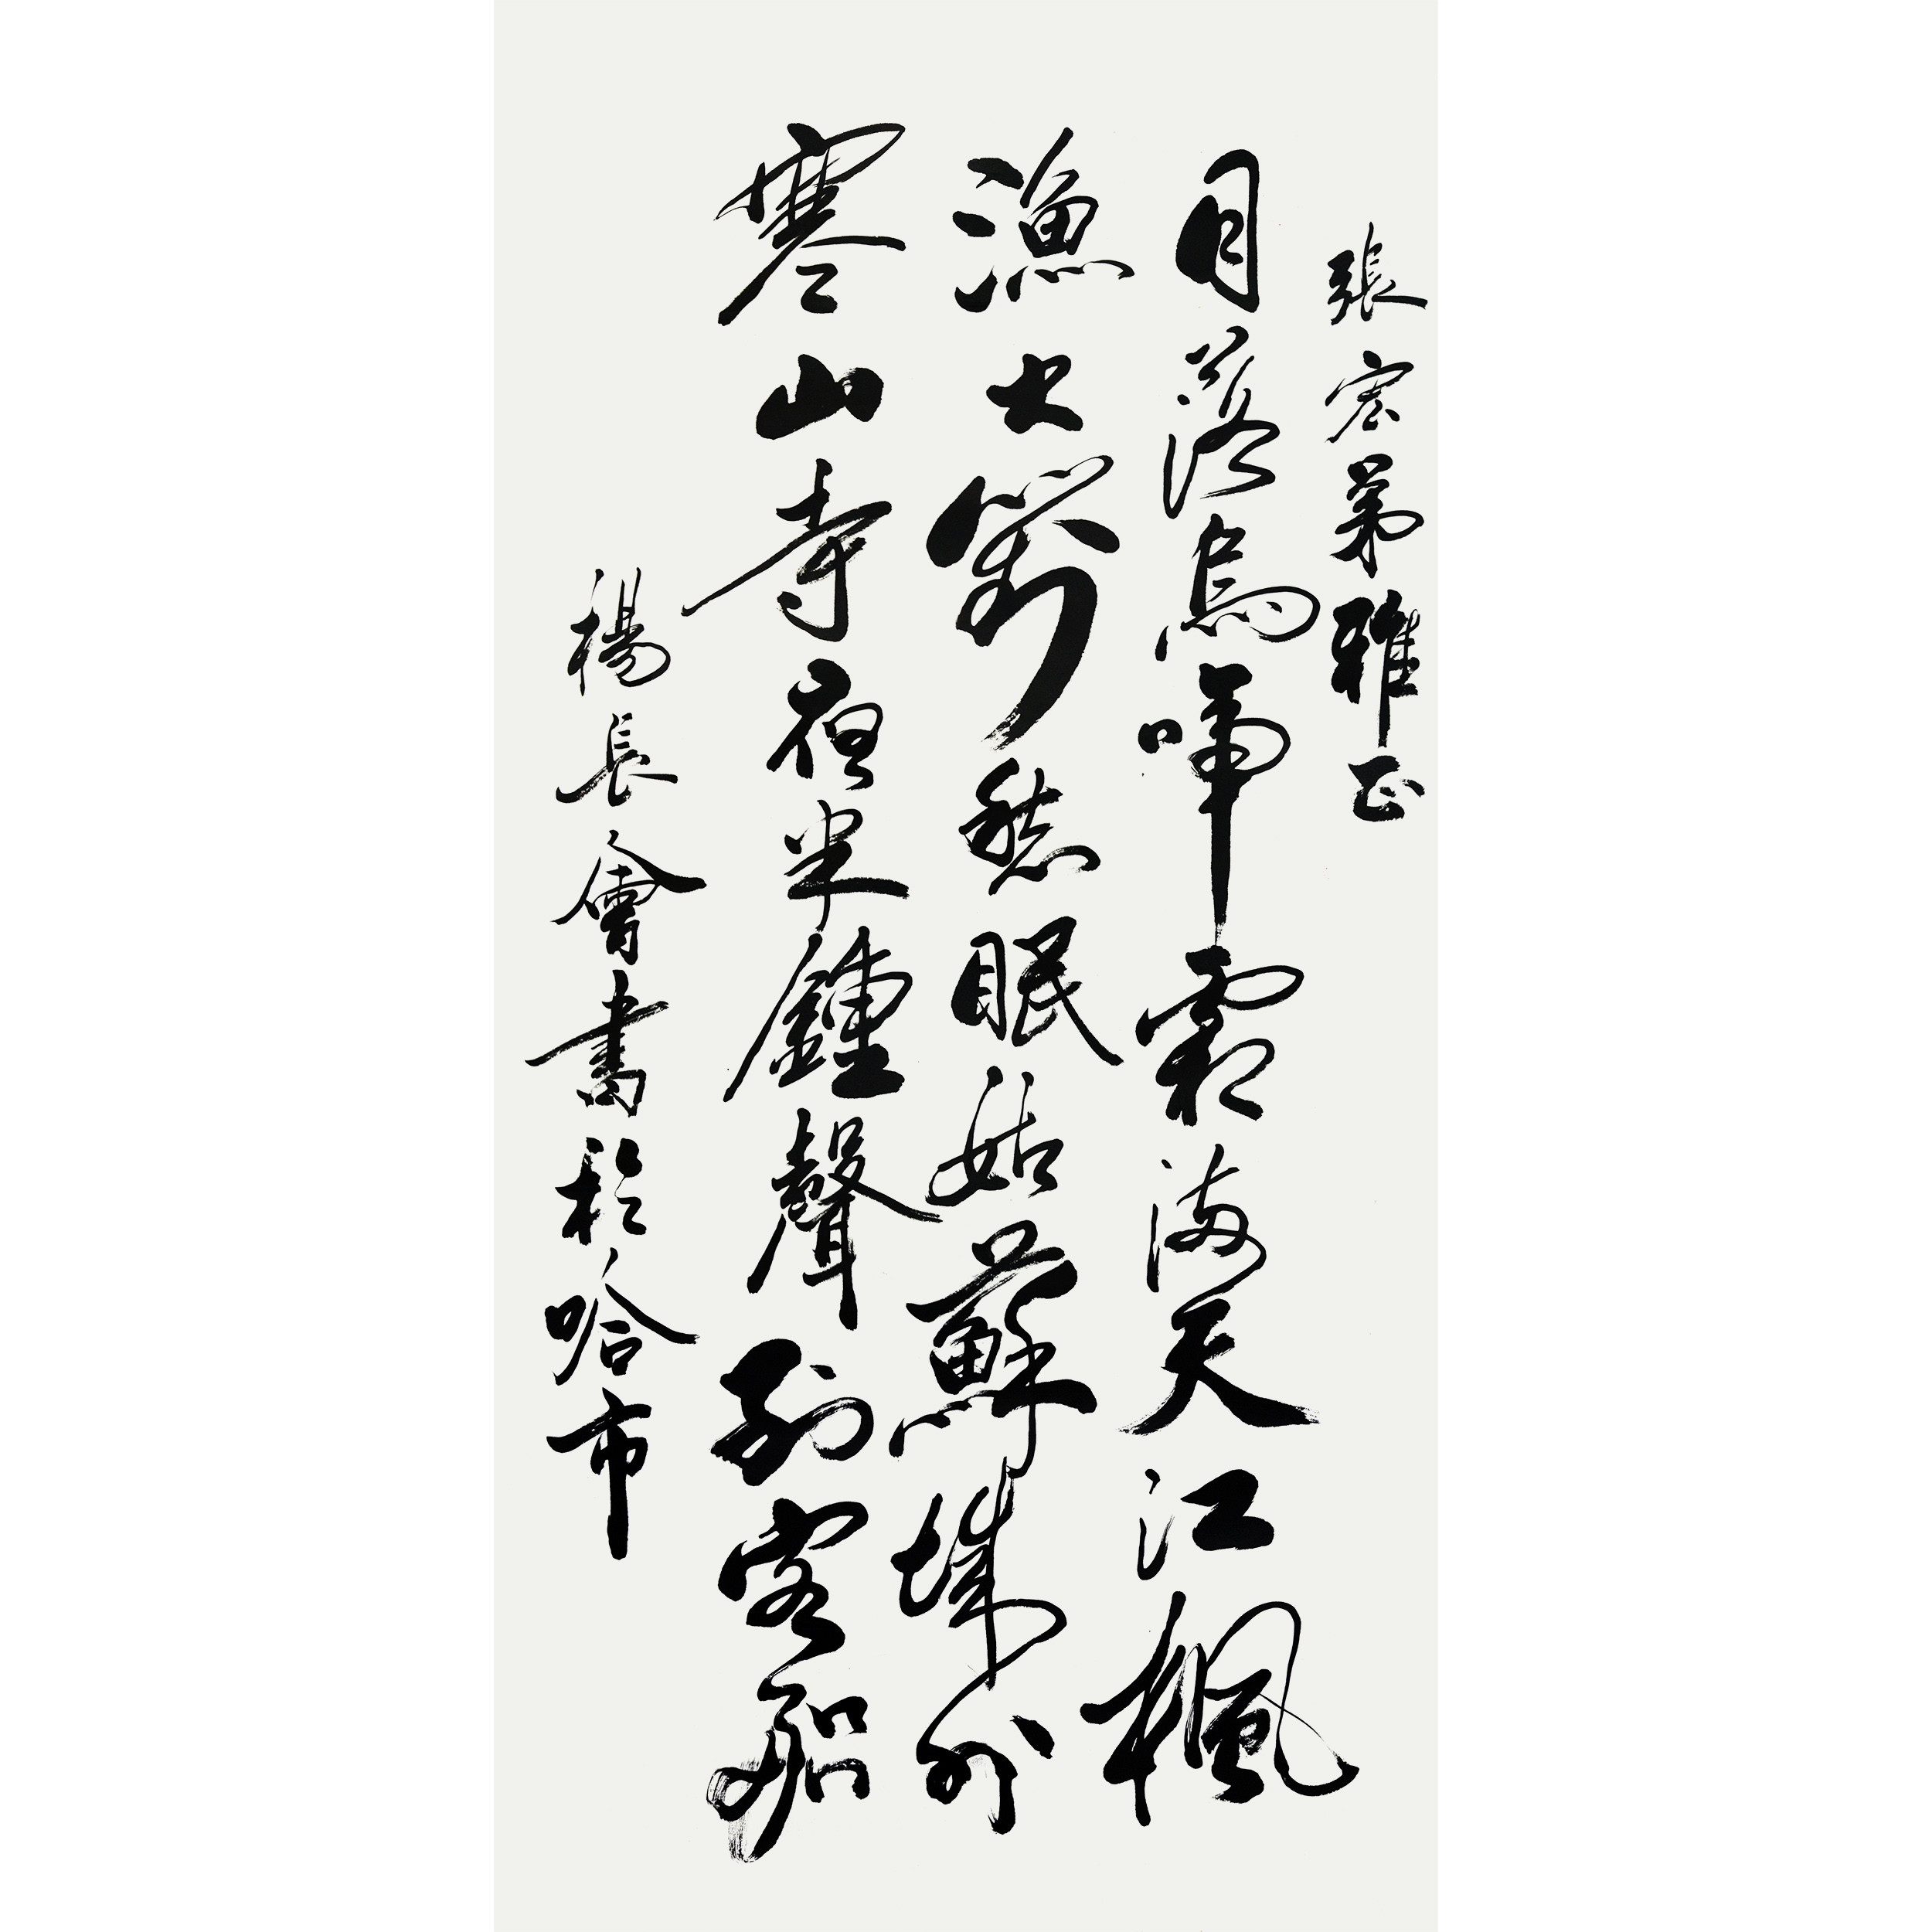 張宏弟雅正
月落烏啼霜滿天江楓
漁火對愁眠姑蘇城外
寒山寺夜半鍾聲到客船
楊長會書於哈市